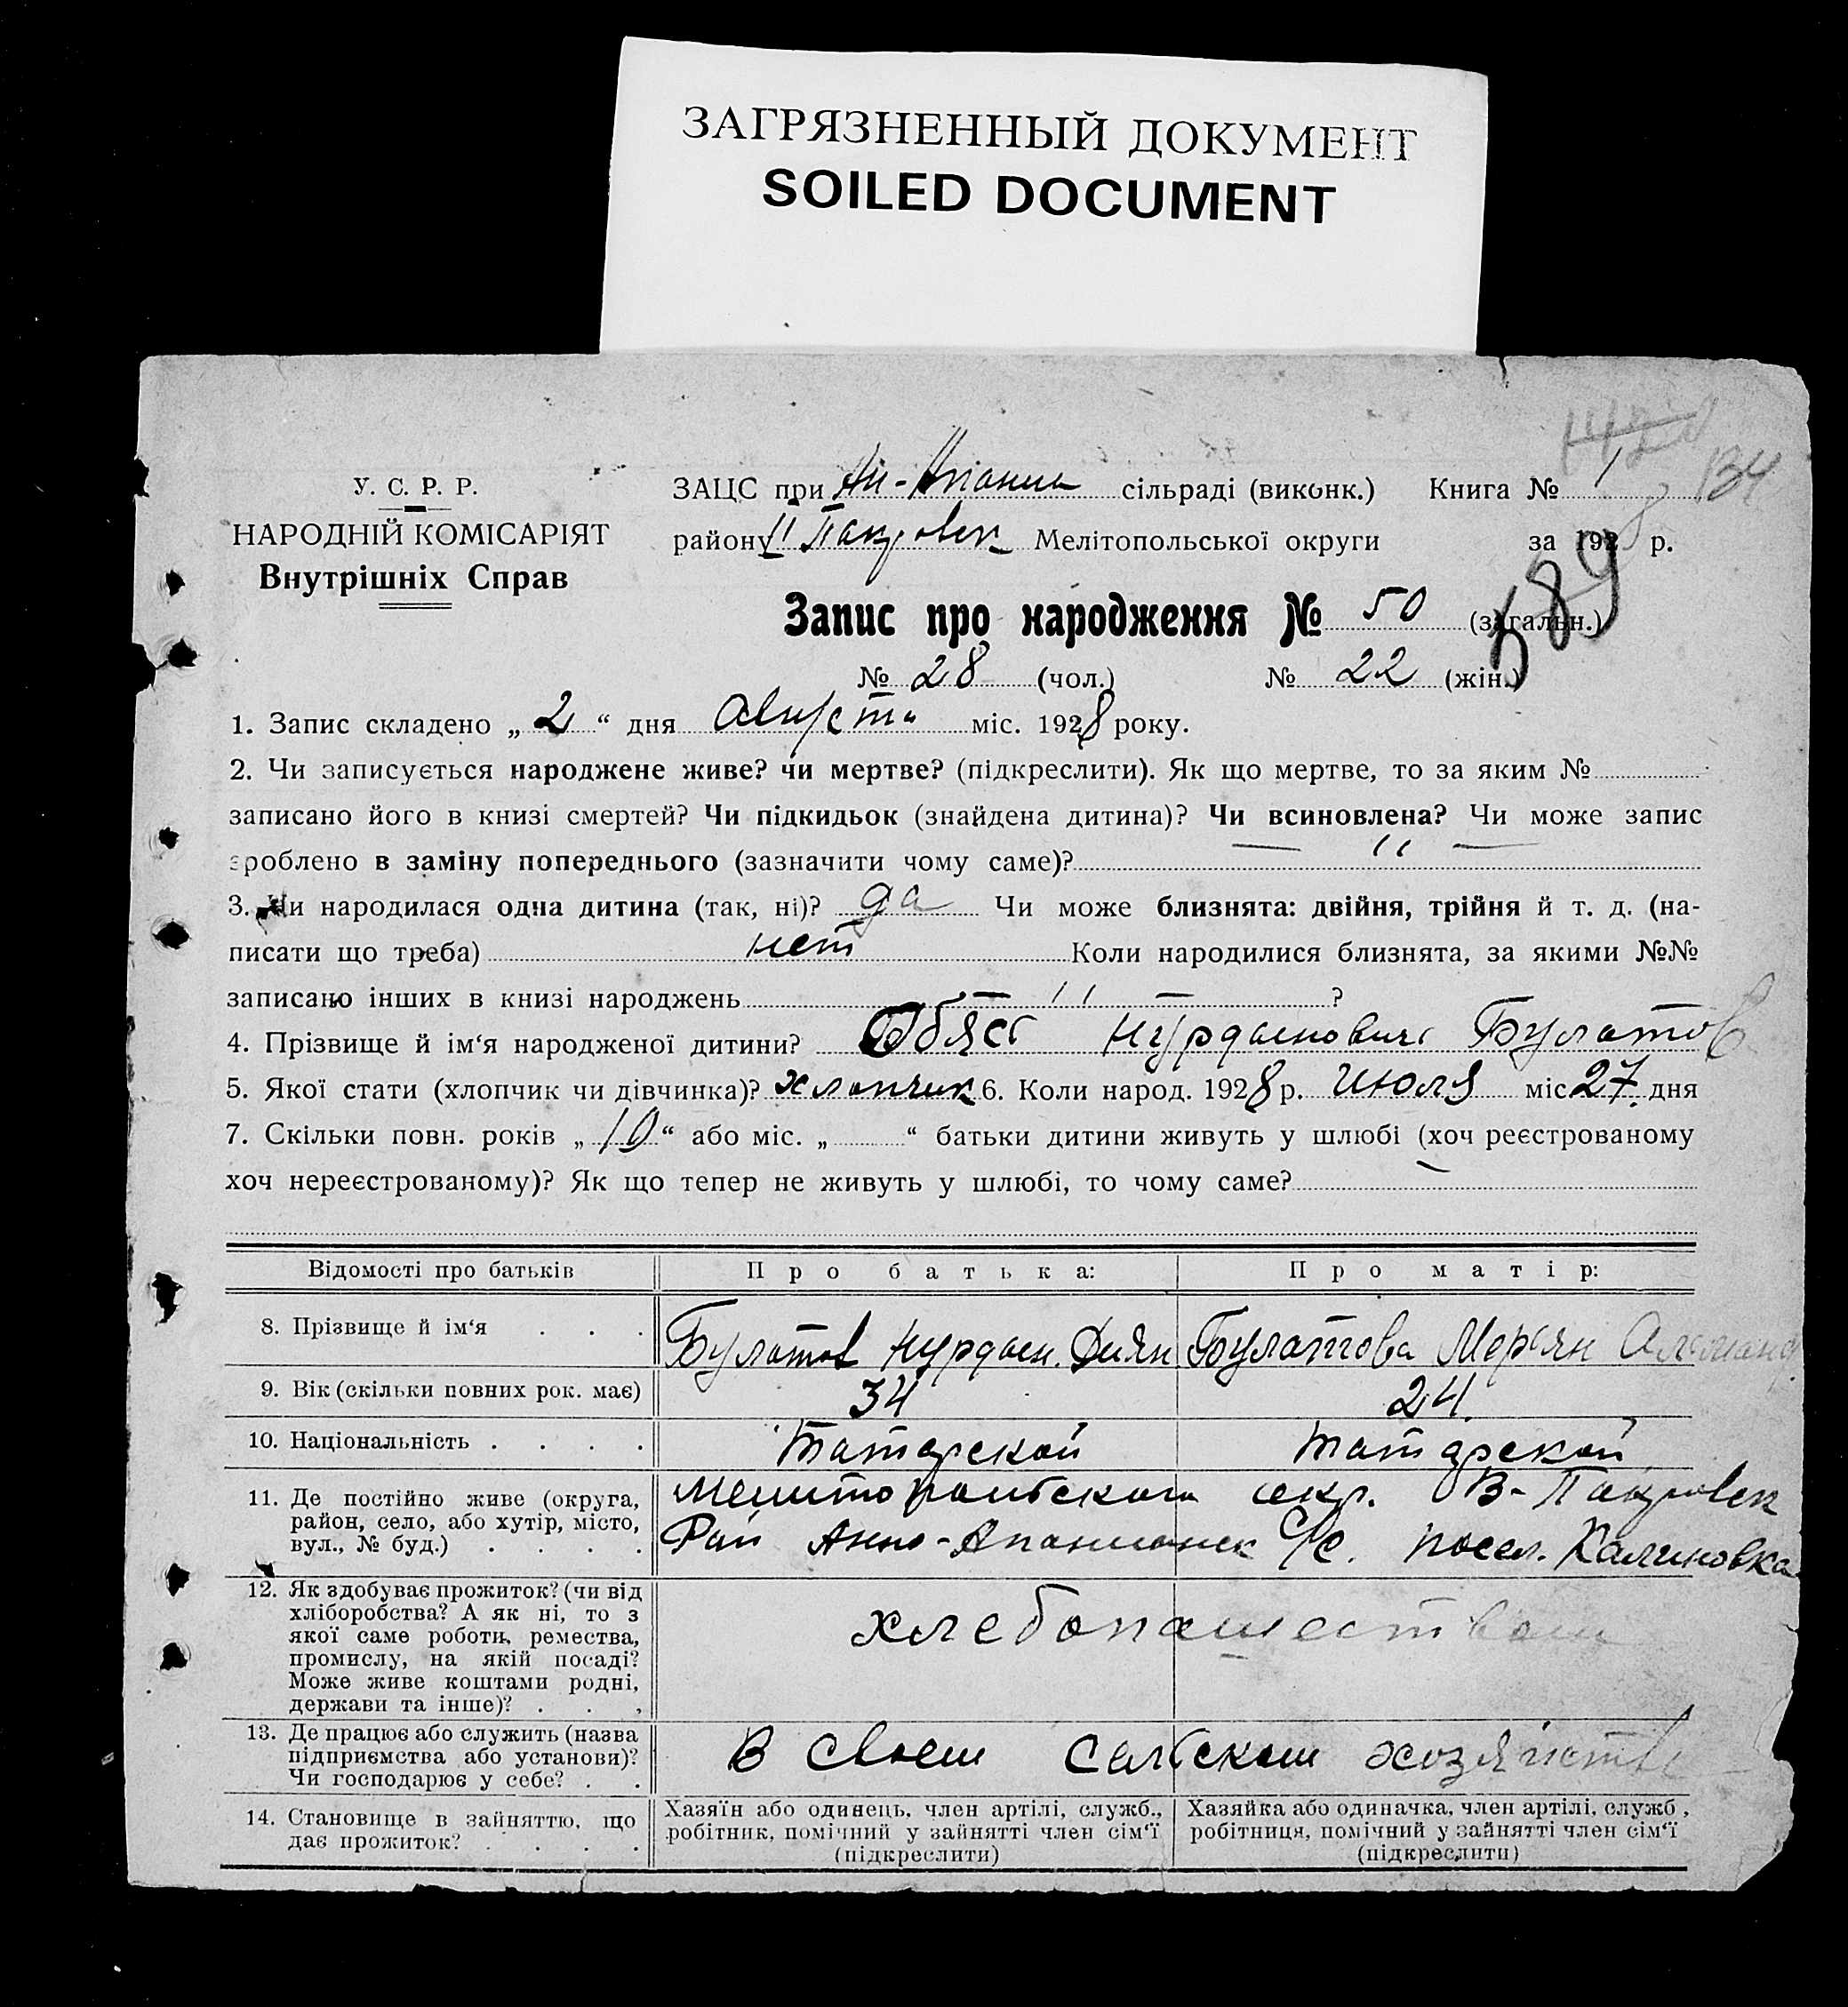 ЗАГРЯЗНЕННЫЙ ДОКУМЕНТ
SOILED DOCUMENT
134
У. С. Р. Р.
НАРОДНІЙ КОМІСАРІЯТ
Внутрішніх Справ
ЗАЦС при сільраді (виконк.) Книга № 1
району Мелітопольської округи за 1928 р.
589
Запис про народження № 50 (загальн.)
№ 28 (чол.) № 22 (жін.)
1. Запис складено „ 2 “ дня Августа міс. 1928 року.
2. Чи записується народжене живе? чи мертве? (підкреслити). Як що мертве, то за яким №
записано його в книзі смертей? Чи підкидьок (знайдена дитина)? Чи всиновлена? Чи може запис
зроблено в заміну попереднього (зазначити чому саме)? — ,, —
3. Чи народилася одна дитина (так, ні)? да Чи може близнята: двійня, трійня й т. д. (на-
писати що треба) нет Коли народилися близнята, за якими №№
записано інших в книзі народжень — ,, — ?
4. Прізвище й ім‘я народженої дитини? Нурдынович Булатов
5. Якої стати (хлопчик чи дівчинка)? хлопчик 6. Коли народ. 1928 р. июля міс. 27 дня
7. Скільки повн. років „ 10 “ або міс. „ “ батьки дитини живуть у шлюбі (хоч реєстрованому
хоч нереєстрованому)? Як що тепер не живуть у шлюбі, то чому саме? —
Відомості про батьків Про батька: Про матір:
8. Прізвище й ім‘я . . . Булатов Булатова
9. Вік (скільки повних рок. має) 34 24
10. Національність . . . . Татарской татарской
11. Де постійно живе (округа,
район, село, або хутір, місто,
вул., № буд.) . . . . Мелитопольского окр. В-Покровск
Рай С/с. посел. Калиновка
12. Як здобуває прожиток? (чи від
хліборобства? А як ні, то з
якої саме роботи, ремества,
промислу, на якій посаді?
Може живе коштами родні,
держави та інше)? . . ,
хлебопашеством
13. Де працює або служить (назва
підприємства або установи)?
Чи господарює у себе? . .
В своем сельском хозяйстве
14. Становище в зайняттю, що
дає прожиток? . . . .
Хазяїн або одинець, член артілі, служб.,
робітник, помічний у зайнятті член сім‘ї
(підкреслити)
Хазяйка або одиначка, член артілі, служб ,
робітниця, помічний у зайнятті член сім‘ї
(підкреслити)